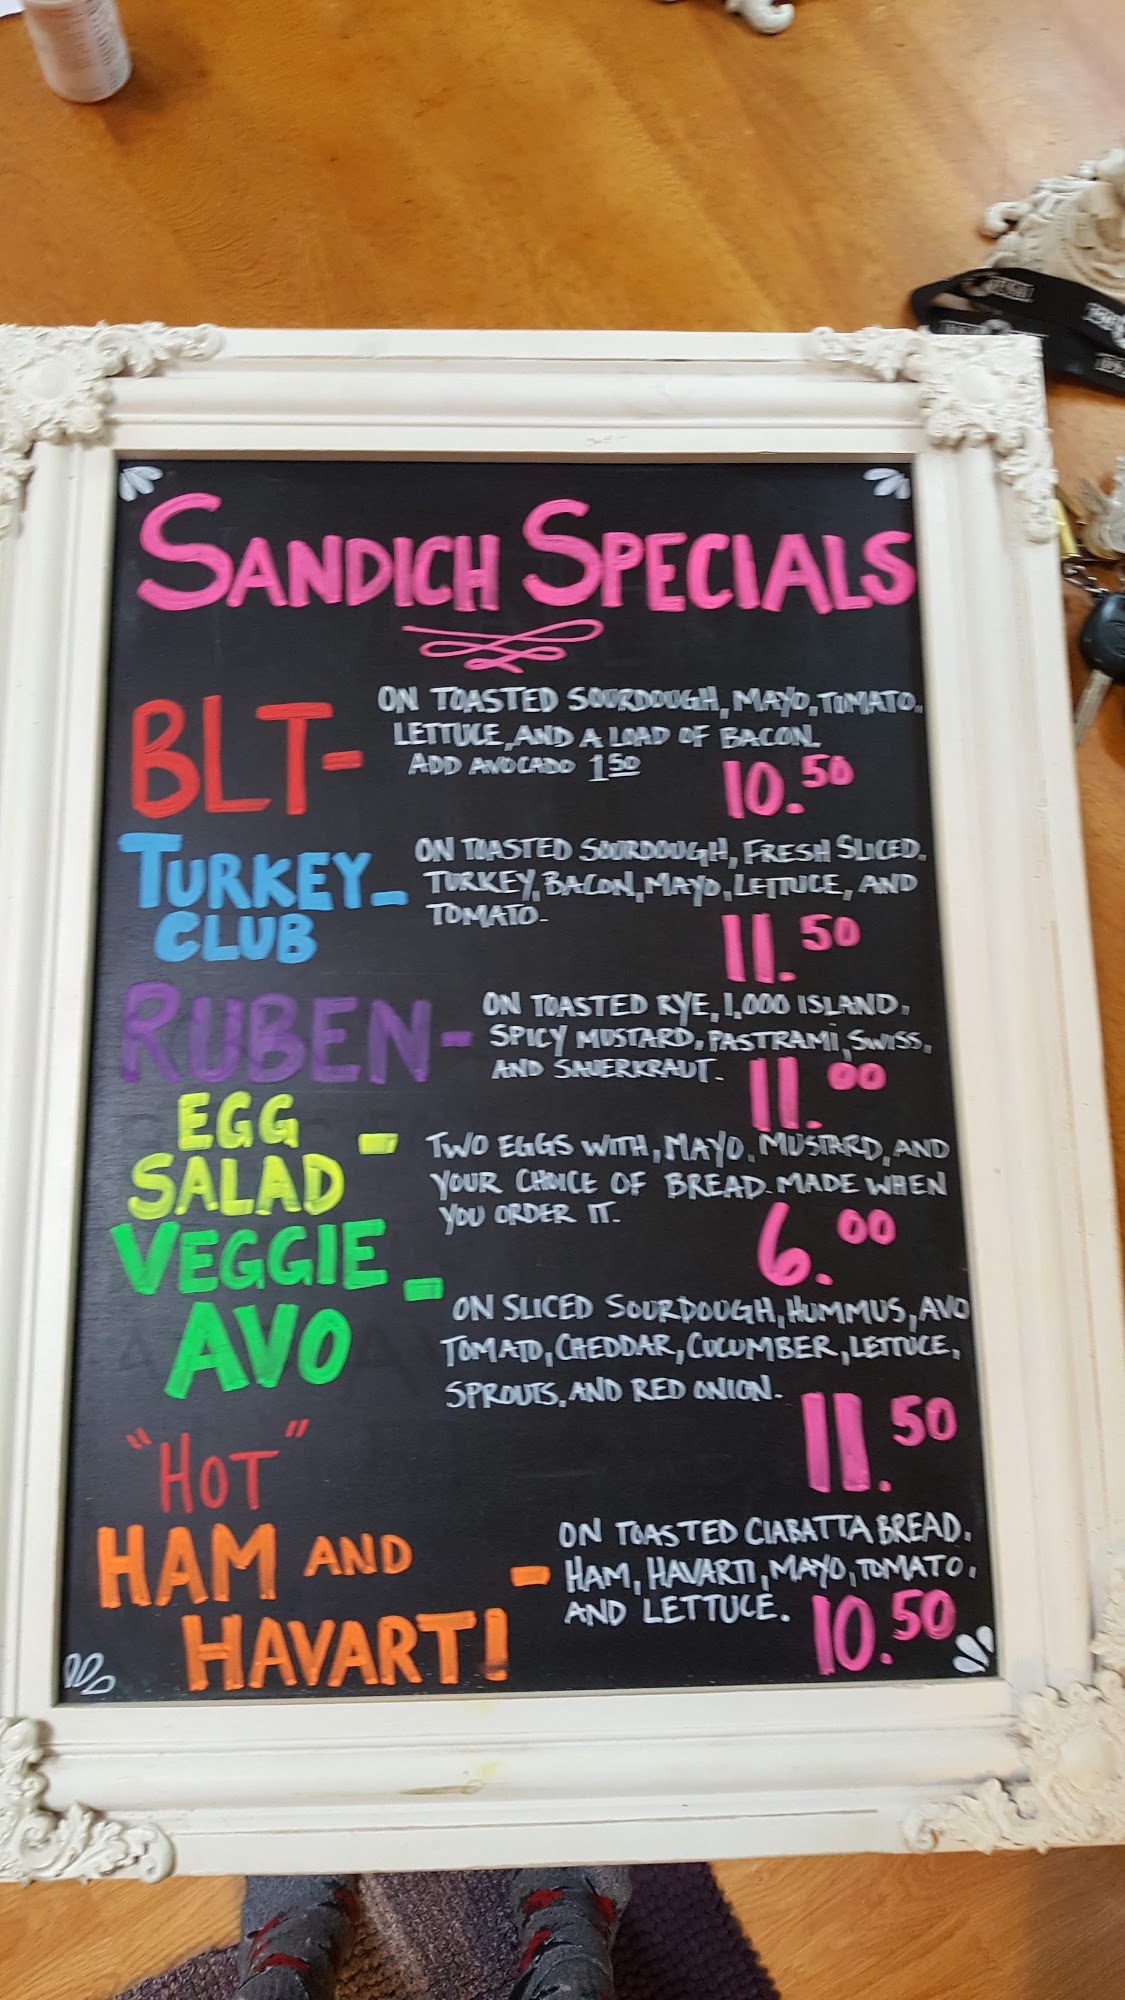 SANDICH SPECIALS
BLT-
ON TOASTED SOURDOUGH, MAYO, TOMATO.
LETTUCE, AND A LOAD OF BACON.
ADD AVOCADO 1.50
10.50
TURKEY-
CLUB
ON TOASTED SOURDOUGH, FRESH SLICED.
TURKEY, BACON, MAYO, LETTUCE, AND
TOMATO.
11.50
RUBEN-
ON TOASTED RYE, 1,000 ISLAND,
SPICY MUSTARD, PASTRAMI, SWISS,
AND SAUERKRAUT.
11.00
EGG -
SALAD
TWO EGGS WITH, MAYO, MUSTARD, AND
YOUR CHOICE OF BREAD. MADE WHEN
YOU ORDER IT.
6.00
VEGGIE -
AVO
ON SLICED SOURDOUGH, HUMMUS, AVO
TOMATO, CHEDDAR, CUCUMBER, LETTUCE,
SPROUTS, AND RED ONION.
11.50
"HOT"
HAM AND -
HAVARTI
ON TOASTED CIABATTA BREAD.
HAM, HAVARTI, MAYO, TOMATO,
AND LETTUCE.
10.50